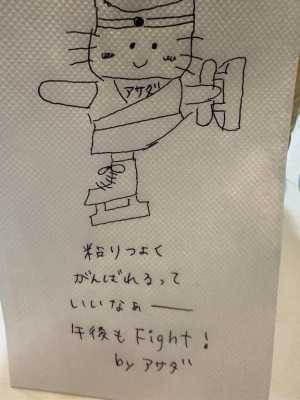 アサダ
粘りつよく
がんばれるって
いいなぁー
午後もFight!
by アサダ